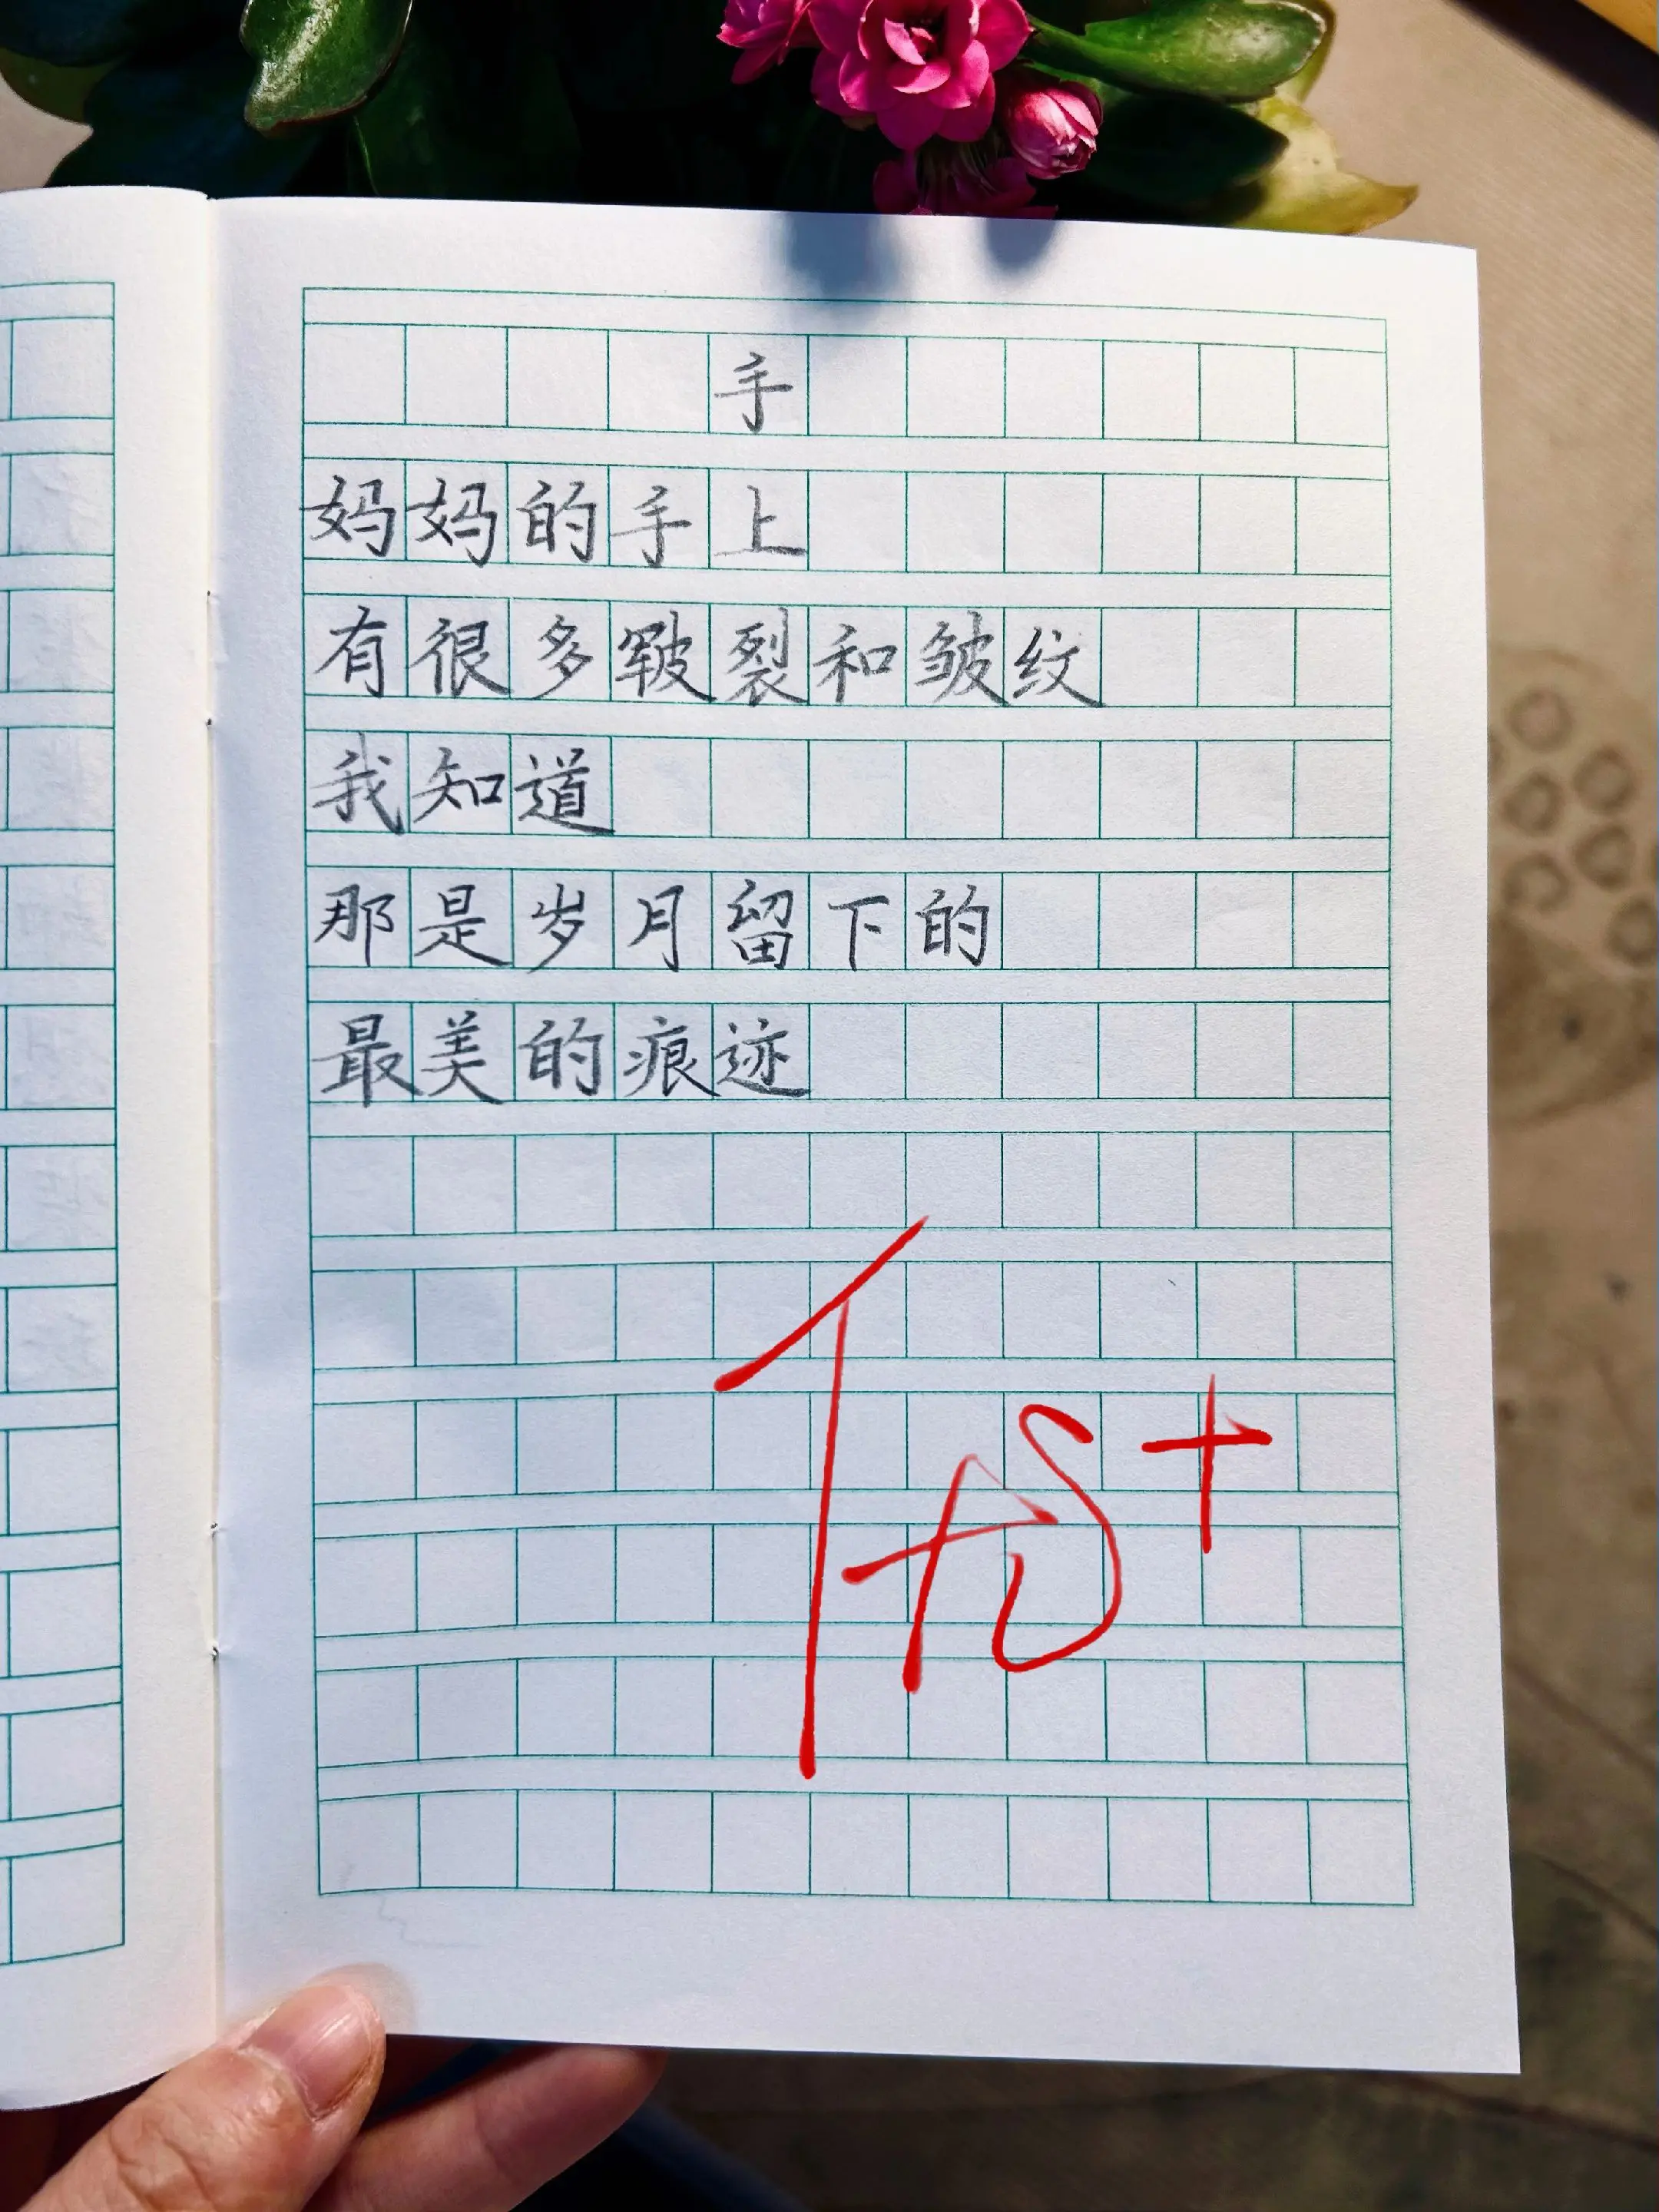 手
妈妈的手上
有很多皲裂和皱纹
我知道
那是岁月留下的
最美的痕迹
优+